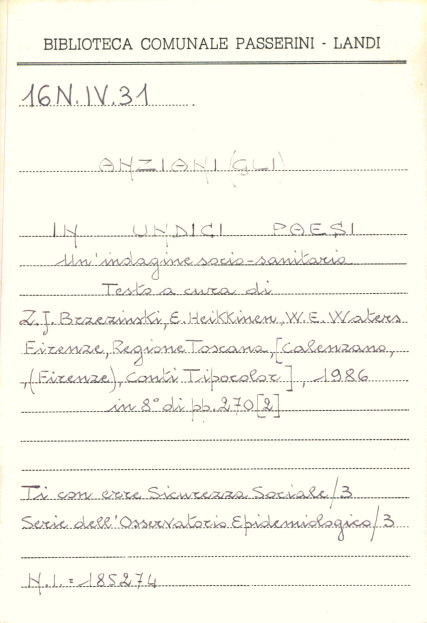 BIBLIOTECA COMUNALE PASSERINI - LANDI
16N.IV.31
ANZIANI (GLI)
IN UNDICI PAESI
Un'indagine socio-sanitaria
Testo a cura di
Z.J. Brzezinski, E. Heikkinen, W.E. Waters
Firenze, Regione Toscana, [Calenzano,
,(Firenze), Conti Tipocolor], 1986
in 8° di pp. 270[2]
Ti con erre Sicurezza Sociale/3
Serie dell'Osservatorio Epidemiologico/3
N.I. = 185274